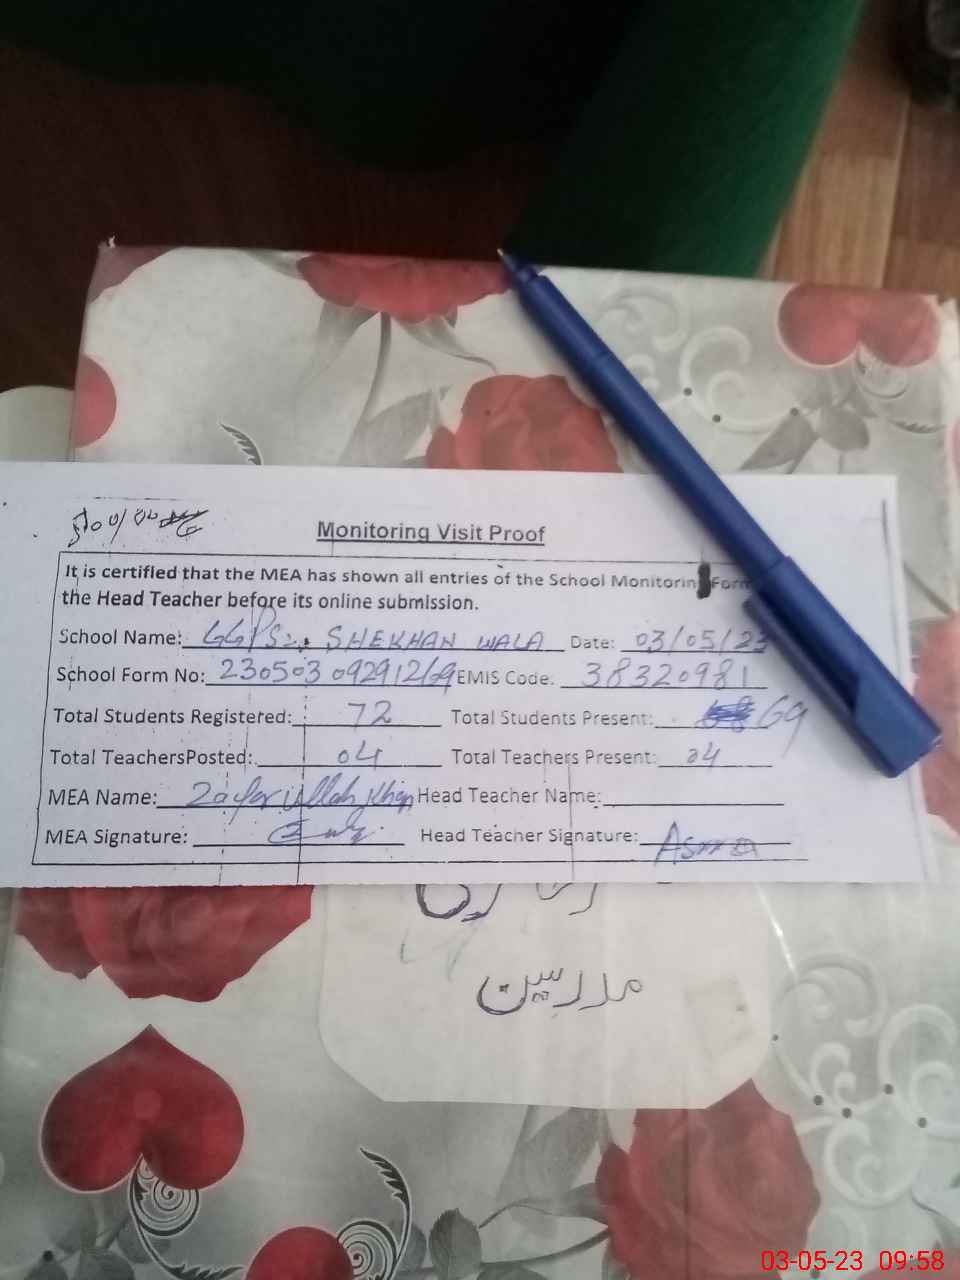 Monitoring Visit Proof
It is certified that the MEA has shown all entries of the School Monitoring Form
the Head Teacher before its online submission.
School Name: GGPS SHEKHAN WALA Date: 03/05/23
School Form No: EMIS Code: 38320981
Total Students Registered: 72 Total Students Present: 69
Total TeachersPosted: 04 Total Teachers Present: 04
MEA Name: Zafar ullah Khan Head Teacher Name:
MEA Signature: Head Teacher Signature: Asma
مدرسین
03-05-23 09:58